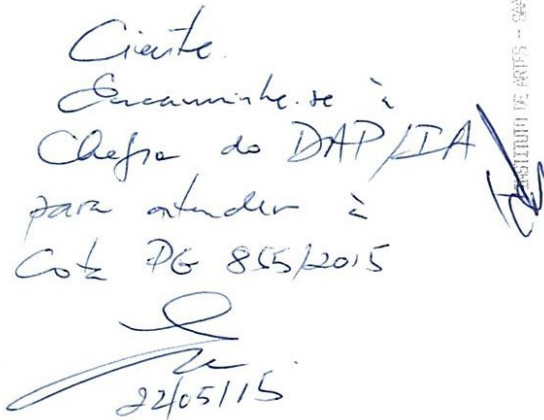 Ciente.
Encaminhe-se à
Chefia do DAP/IA
para atender à
Cota PG 855/2015
22/05/15
INSTITUTO DE ARTES -